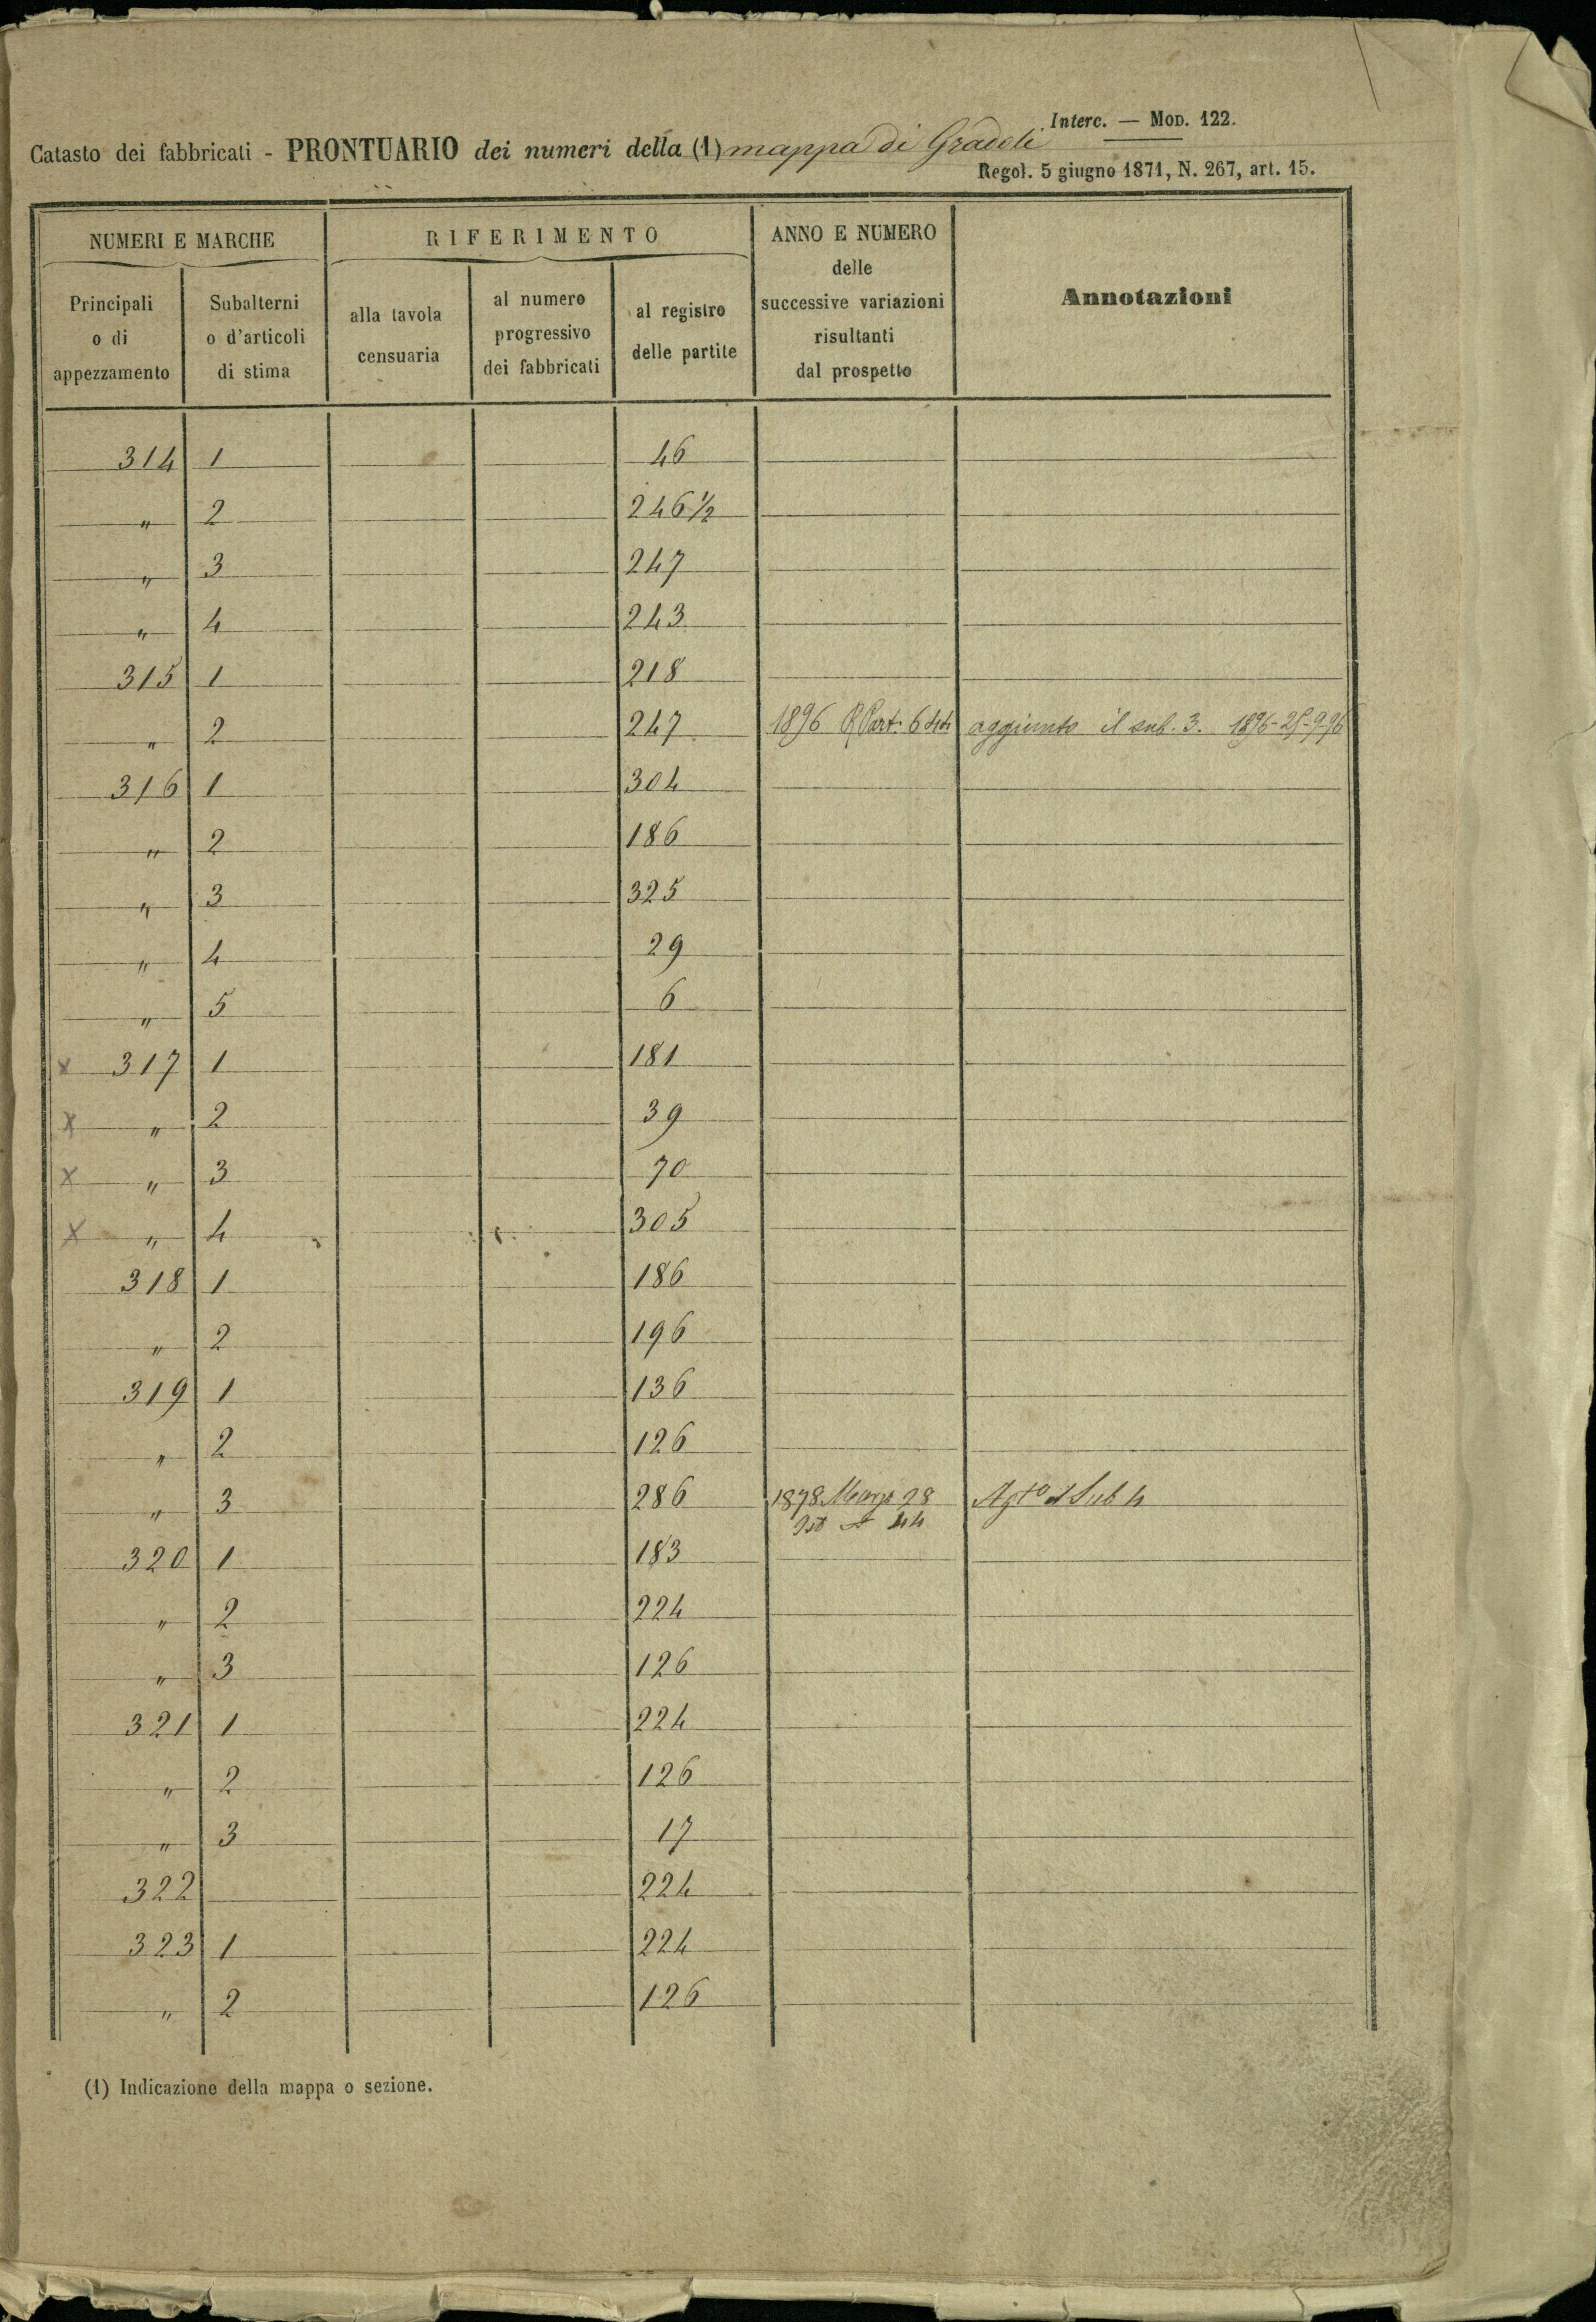 Interc. — Mod. 122.
Catasto dei fabbricati - PRONTUARIO dei numeri della (1) mappa di Gradoli
Regol. 5 giugno 1871, N. 267, art. 15.
NUMERI E MARCHE
Principali o di appezzamento
Subalterni o d'articoli di stima
RIFERIMENTO
alla tavola censuaria
al numero progressivo dei fabbricati
al registro delle partite
ANNO E NUMERO delle successive variazioni risultanti dal prospetto
Annotazioni
314 1 46
" 2 246 ½
" 3 247
" 4 243
315 1 218
" 2 247 1896 R Part: 644 aggiunto il sub. 3.
316 1 304
" 2 186
" 3 325
" 4 29
" 5 6
x 317 1 181
x " 2 39
x " 3 70
x " 4 305
318 1 186
" 2 196
319 1 136
" 2 126
" 3 286 1878 Marzo 28 Agto il Sub 4
44
320 1 183
" 2 224
" 3 126
321 1 224
" 2 126
" 3 17
322 224
323 1 224
" 2 126
(1) Indicazione della mappa o sezione.